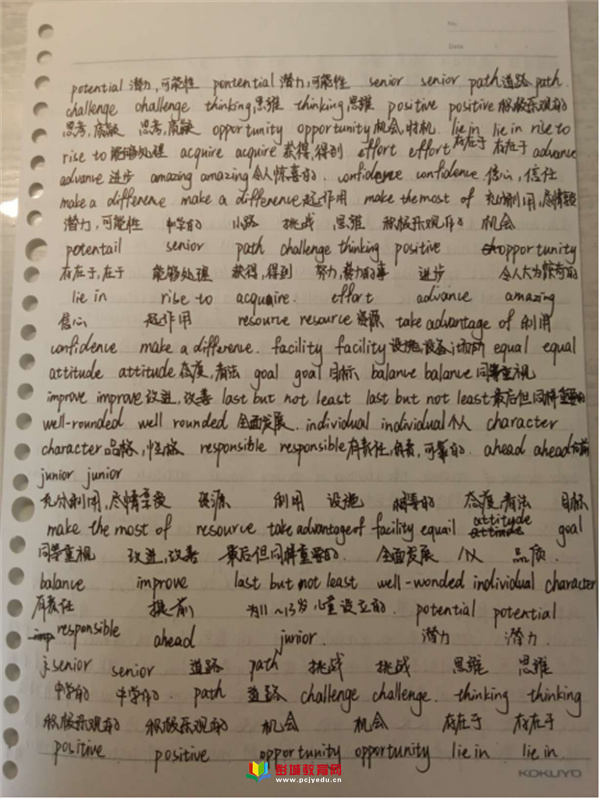 No.
Date
potential 潜力,可能性 pontential 潜力,可能性 senior senior path 道路 path.
challenge challenge thinking,思维 thinking,思维 positive positive 积极乐观的
思考,质疑 思考,质疑 opportunity opportunity 机会,时机. lie in lie in rise to
rise to 能够处理 acquire acquire 获得,得到 effort effort 存在于 存在于 advance
advance 进步 amazing amazing 令人惊喜的. confidence confidence 信心,信任
make a difference make a difference 起作用 make the most of 充分利用,尽情享
潜力,可能性 中学的 小路 挑战 思维 积极乐观的 机会
potentail senior path challenge thinking positive opportunity
存在于,在于 能够处理 获得,得到 努力, 进步 令人大为惊奇的
lie in rise to acquaire. effort advance amazing
信心 起作用 resource resource 资源 take advantage of 利用
confidence make a difference. facility facility 设施,设备 equal equal
attitude attitude 态度,看法 goal goal 目标 balance balance 同等重视
improve improve 改进,改善 last but not least last but not least 最后但同样重要的
well-rounded well rounded 全面发展. individual individual 个人 character
character 品格,性格 responsible responsible 有责任,负责,可靠的. ahead ahead
junior junior
充分利用,尽情享受 资源 利用 设施 相等的 态度,看法 目标
make the most of resource take advantage of facility equail attitude goal
同等重视 改进,改善 最后但同样重要的. 全面发展 个人 品质.
balance improve last but not least well-wonded individual character
有责任 提前 为11~13岁儿童设立的. potential potential
responsible ahead junior. 潜力 潜力.
senior senior 道路 path 挑战 挑战 思维 思维
中学的 中学的. path 道路 challenge challenge. thinking thinking
积极乐观的 积极乐观的 机会 机会 存在于 存在于
positive positive opportunity opportunity lie in lie in.
彭城教育网
www.pcjyedu.cn
KOKUYO